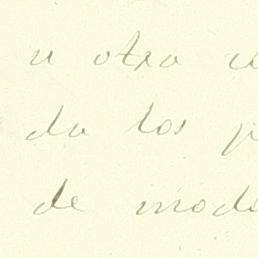 u otra
da los
de mod